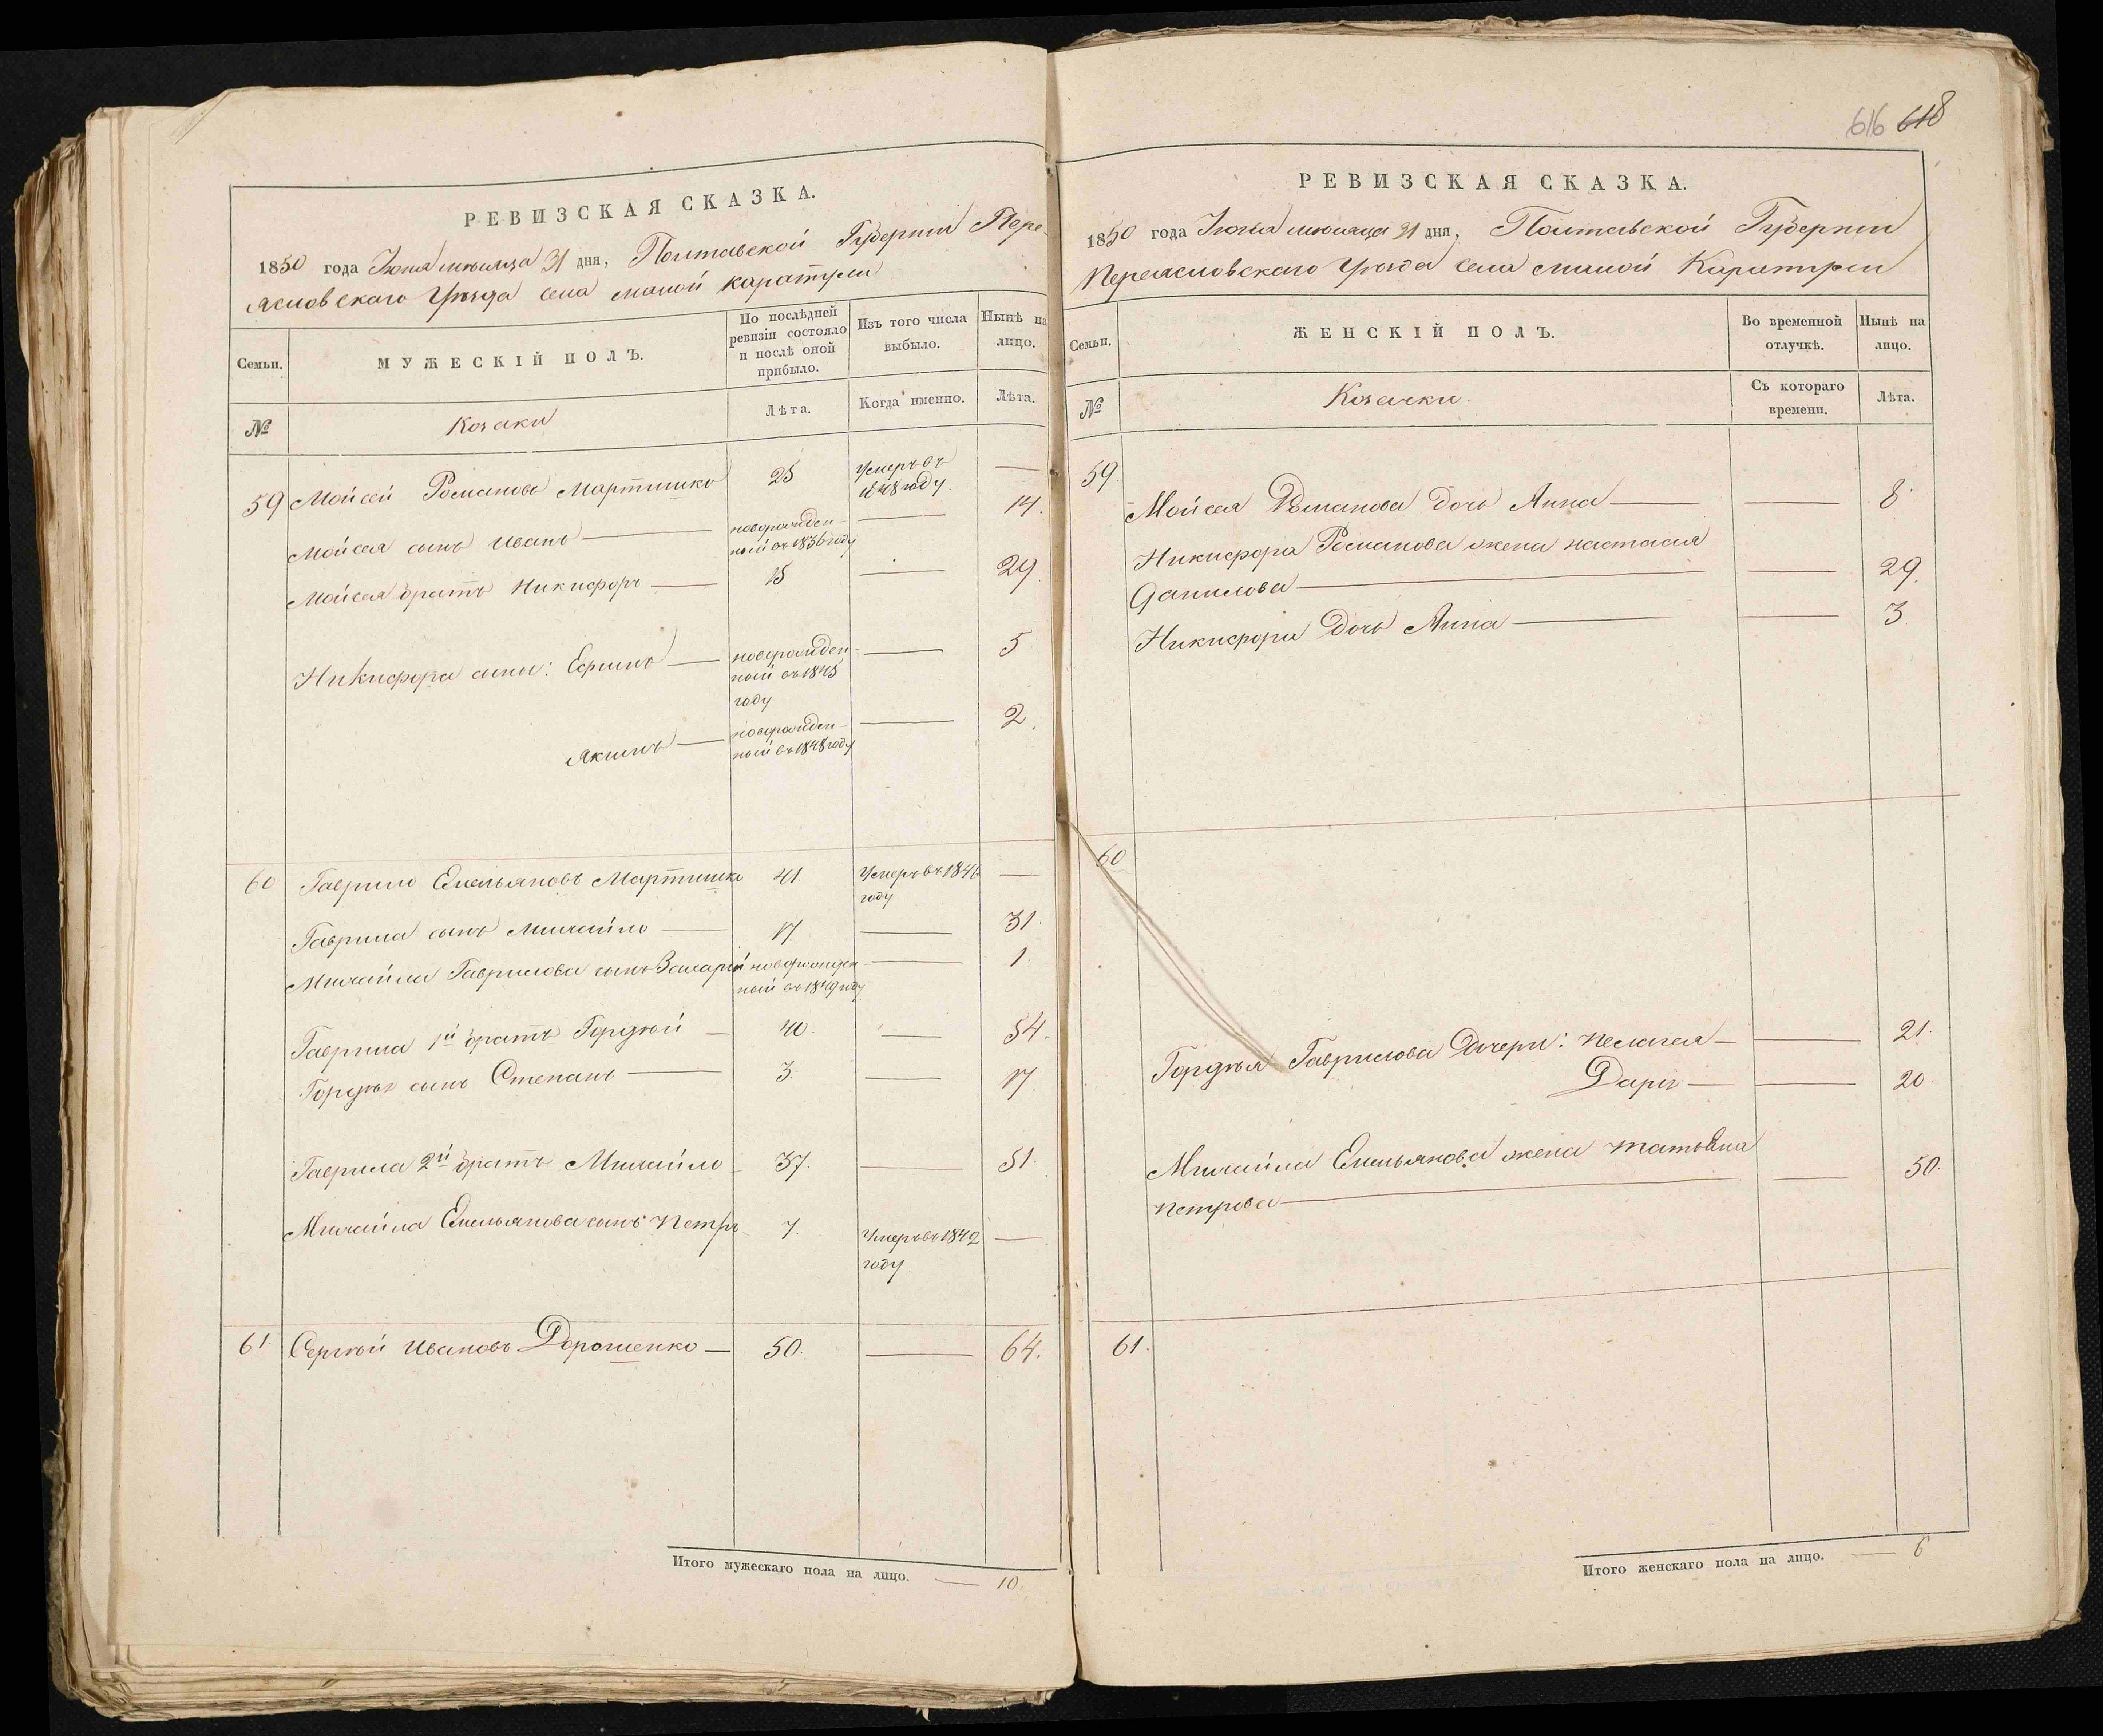 616 618
РЕВИЗСКАЯ СКАЗКА.
1850 года Июня месяца 31 дня, Полтавской Губернии Пере-
яславскаго Уѣзда села малой каратули
Семьи. МУЖЕСКІЙ ПОЛЪ. По послѣдней ревизіи состояло и послѣ оной прибыло. Изъ того числа выбыло. Нынѣ на лицо.
№ Козаки Лѣта. Когда именно. Лѣта.
59 Мойсей Романовъ Мартишко 25 Умеръ въ 1848 году —
Мойсея сынъ Иванъ — новорожденный въ 1836 году — 14.
Мойсея братъ Никифоръ — 15 — 29.
Никифора сыны: Ефимъ — новорожденный въ 1845 году — 5
Якимъ — новорожденный въ 1848 году — 2.
60 Гаврило Емельяновъ Мартишко 41. Умеръ въ 1846 году —
Гаврила сынъ Михайло — 17. — 31.
Михайла Гаврилова сынъ Захарій новорожденный въ 1849 году — 1.
Гаврила 1й братъ Гордѣй — 40. — 54.
Гордѣя сынъ Степанъ — 3. — 17.
Гаврила 2й братъ Михайло — 37. — 51.
Михайла Емельянова сынъ Петръ 7. Умеръ въ 1842 году —
61. Сергѣй Ивановъ Дорошенко — 50. — 64.
Итого мужескаго пола на лицо. — 10.
РЕВИЗСКАЯ СКАЗКА.
1850 года Июня месяца 31 дня, Полтавской Губернии
Переяславскаго Уѣзда села малой Каратули
Семьи. ЖЕНСКІЙ ПОЛЪ. Во временной отлучкѣ. Нынѣ на лицо.
№ Козачки. Съ котораго времени. Лѣта.
59.
Мойсея Романова дочь Анна — — 8.
Никифора Романова жена настасия
Данилова — — 29.
Никифора дочь Анна — — 3.
60
Гордѣя Гаврилова дочери: Пелагея — — 21.
Дарья — — 20.
Михайла Емельянова жена татьяна
Петрова — — 50.
61.
Итого женскаго пола на лицо. — 6